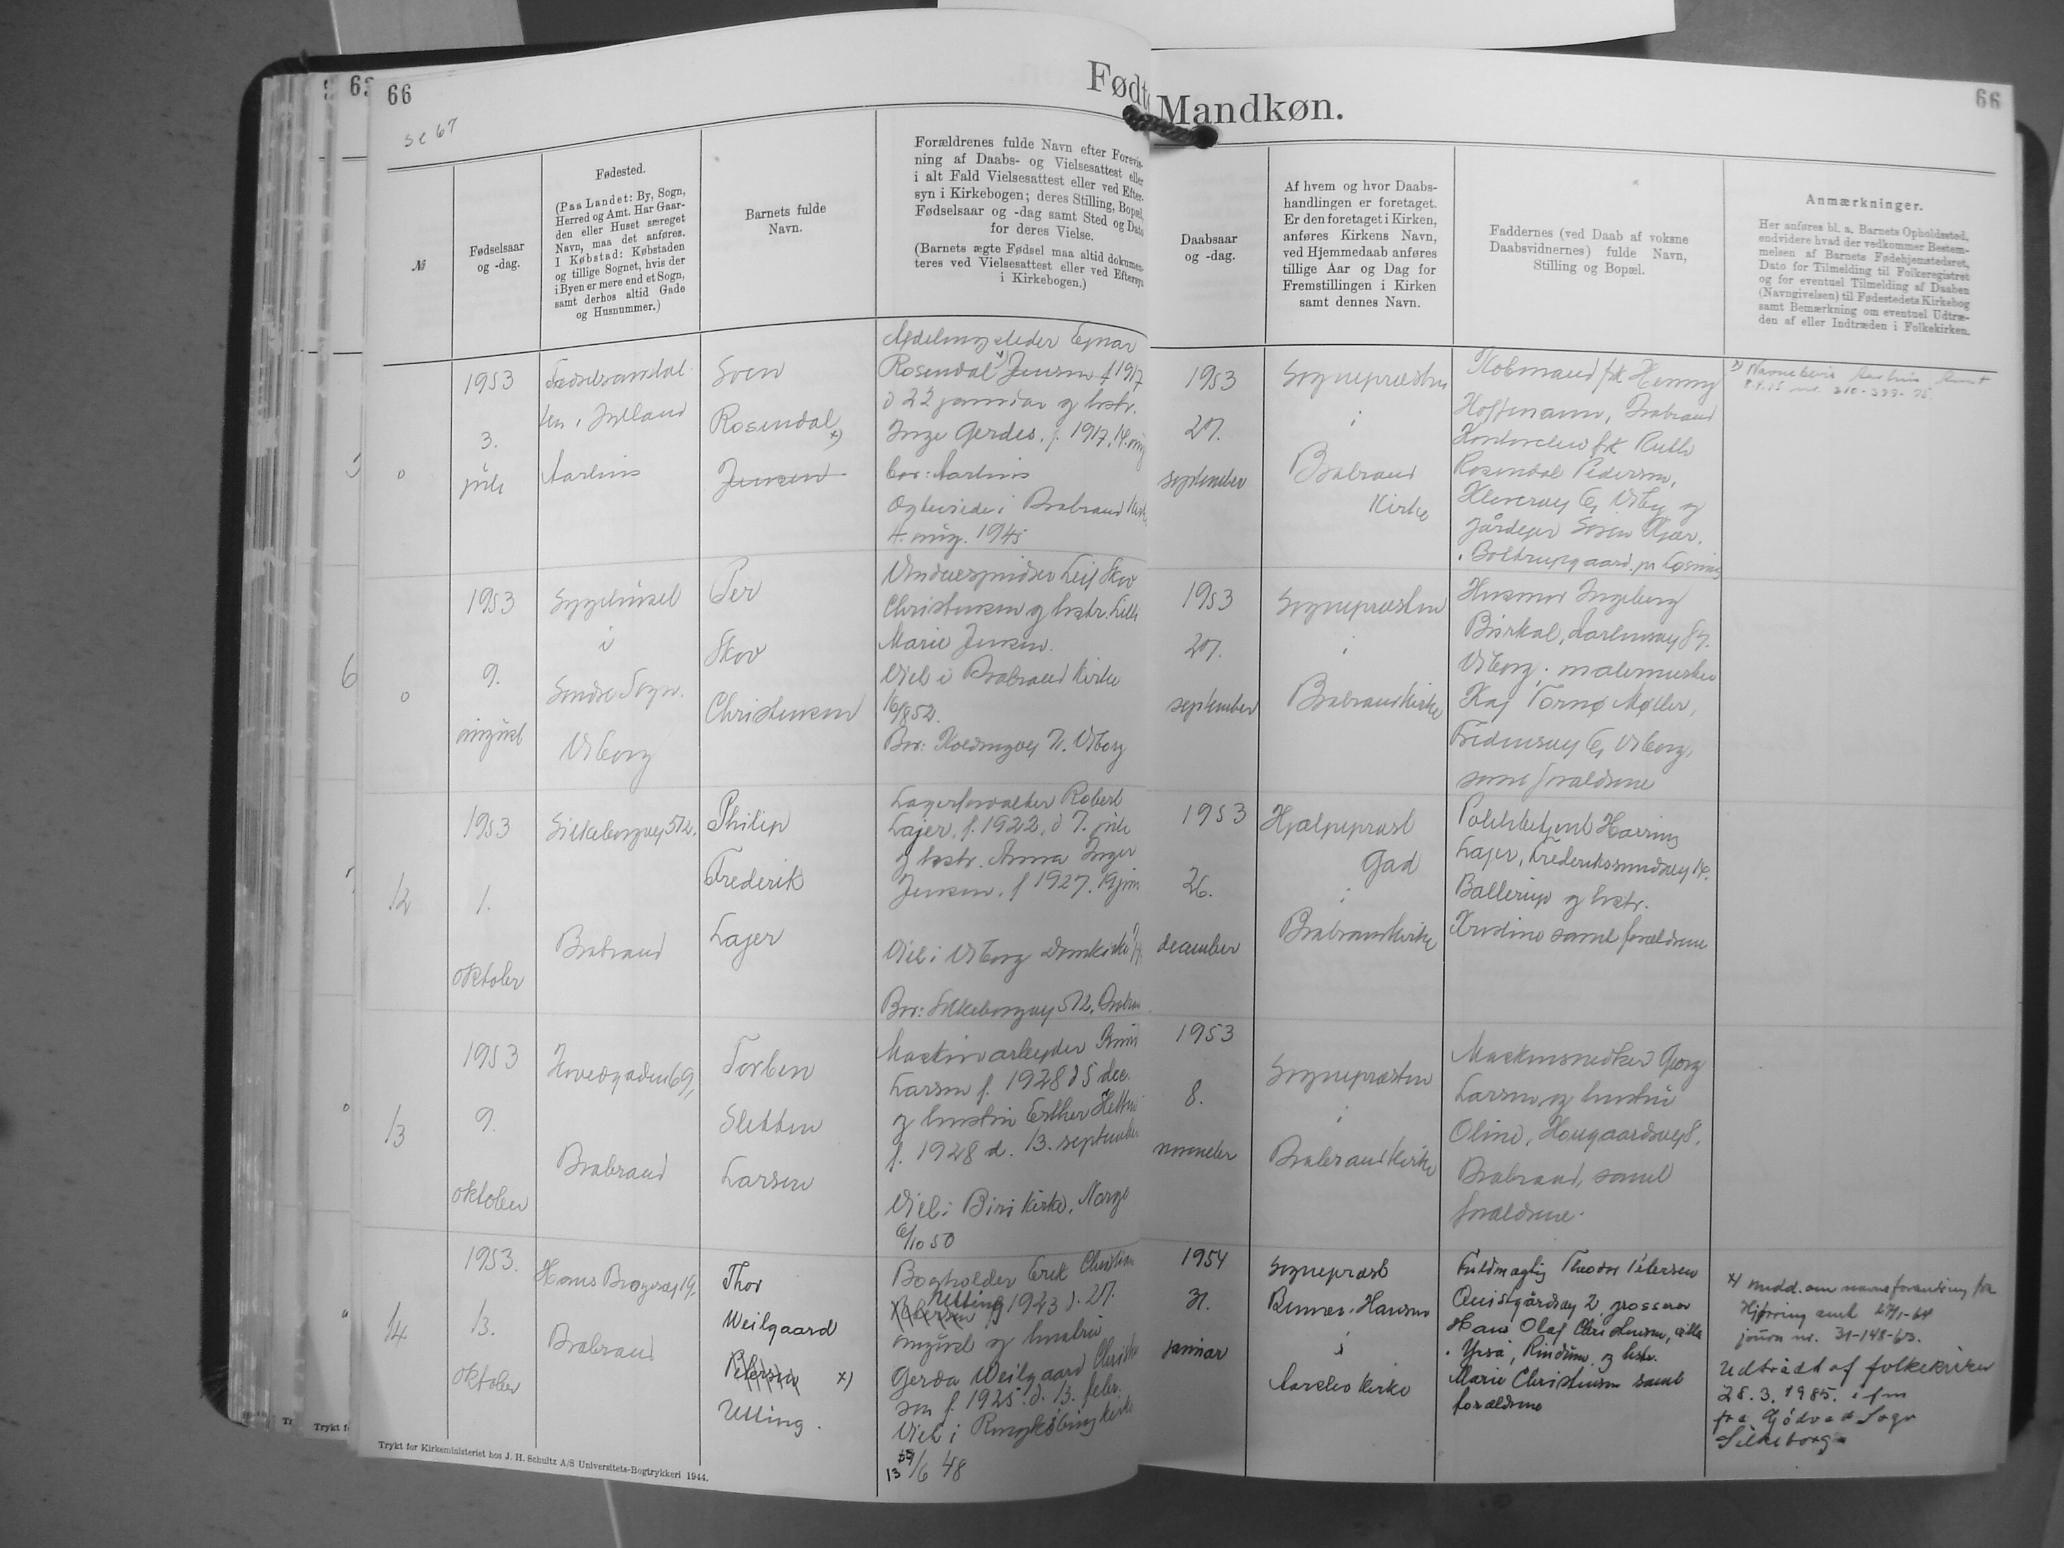 66
63
se 67
Fødte
Mandkøn.
66
№
Fødselsaar
og -dag.
Fødested.
(Paa Landet: By, Sogn,
Herred og Amt. Har Gaar-
den eller Huset særeget
Navn, maa det anføres.
I Købstad: Købstaden
og tillige Sognet, hvis der
i Byen er mere end et Sogn,
samt derhos altid Gade
og Husnummer.)
Barnets fulde
Navn.
Forældrenes fulde Navn efter Forevis-
ning af Daabs- og Vielsesattest eller
i alt Fald Vielsesattest eller ved Efter-
syn i Kirkebogen; deres Stilling, Bopæl,
Fødselsaar og -dag samt Sted og Dato
for deres Vielse.
(Barnets ægte Fødsel maa altid dokumen-
teres ved Vielsesattest eller ved Eftersyn
i Kirkebogen.)
Daabsaar
og -dag.
Af hvem og hvor Daabs-
handlingen er foretaget.
Er den foretaget i Kirken,
anføres Kirkens Navn,
ved Hjemmedaab anføres
tillige Aar og Dag for
Fremstillingen i Kirken
samt dennes Navn.
Faddernes (ved Daab af voksne
Daabsvidnernes) fulde Navn,
Stilling og Bopæl.
Anmærkninger.
Her anføres bl. a. Barnets Opholdssted,
endvidere hvad der vedkommer Bestem-
melsen af Barnets Fødehjemstedsret,
Dato for Tilmelding til Folkeregistret
og for eventuel Tilmelding af Daaben
(Navngivelsen) til Fødestedets Kirkebog
samt Bemærkning om eventuel Udtræ-
den af eller Indtræden i Folkekirken.
o
1953
3.
juli
Jylland
Aarhus
Sven
Rosendal x)
Jensen
Afdelingsleder Ejnar
Rosendal Jensen f 1917
d 22 januar og hstr.
Inge Gerdes. f. 1917. 14. aug
bor: Aarhus
Brabrand Kirke
4. aug. 1945
1953
27.
september
Sognepræsten
i
Brabrand
Kirke
Købmand frk Henny
Hoffmann, Brabrand
frk Ruth
Rosendal Pedersen,
6, Viby og
gårdejer Kjær,
o
1953
9.
august
Sygehuset
i
Søndre Sogn.
Viborg
Per
Skov
Christensen
Leif Skov
Christensen og hstr.
Marie Jensen.
Viet i Brabrand Kirke
16/8 52.
Bor: Koldingvej 7. Viborg
1953
27.
september
Sognepræsten
i
Brabrand Kirke
Husmor Ingeborg
87.
Viborg, malermester
Kaj Tornø Møller,
6, Viborg,
samt forældrene
12
1953
1.
oktober
Silkeborgvej 572,
Brabrand
Philip
Frederik
Lajer
Lagerforvalter Robert
Lajer, f. 1922, d 7. juli
og hstr. Anna Inger
Jensen. f 1927. 19 juni
Viet i Viborg Domkirke
Bor: Silkeborgvej 572, Brabrand
1953
26.
december
Hjælpepræst
Gad
i
Brabrand Kirke
Politibetjent Henning
Lajer, Frederikssundsvej 14.
Ballerup og hstr.
Kristine samt forældrene
13
1953
9.
oktober
Hovedgaden 69,
Brabrand
Torben
Sletten
Larsen
Maskinarbejder
Larsen f. 1928 d 5 dec.
og hustru Esther
f. 1928 d. 13. september
Viet i Biri Kirke, Norge
6/10 50
1953
8.
november
Sognepræsten
i
Brabrand Kirke
Maskinsnedker Georg
Larsen og hustru
Oline, Hougaardsvej 8,
Brabrand, samt
forældrene.
14
1953.
13.
oktober
Hans Brogesvej 19,
Brabrand
Thor
Weilgaard
Petersen x)
Utting.
Bogholder Erik Christian
Utting
Petersen f 1923 d. 27.
august og hustru
Gerda Weilgaard Christen
sen f. 1925. d. 13. febr.
Viet i Ringkøbing Kirke
13/6 48
1954
31.
januar
Sognepræst
Hansen
i
Aarslev Kirke
Fuldmægtig Theodor Petersen
Quistgårdsvej 2, grosserer
Hans Olaf Christensen, villa
Rindum og hstr.
Marie Christensen samt
forældrene
x) medd. om navneforandring fra
Hjørring amt
journ nr. 31-148-63.
Udtrådt af folkekirken
28.3.1985. i fm
fra Gjødvad Sogn
Silkeborg.
Trykt for Kirkeministeriet hos J. H. Schultz A/S Universitets-Bogtrykkeri 1944.